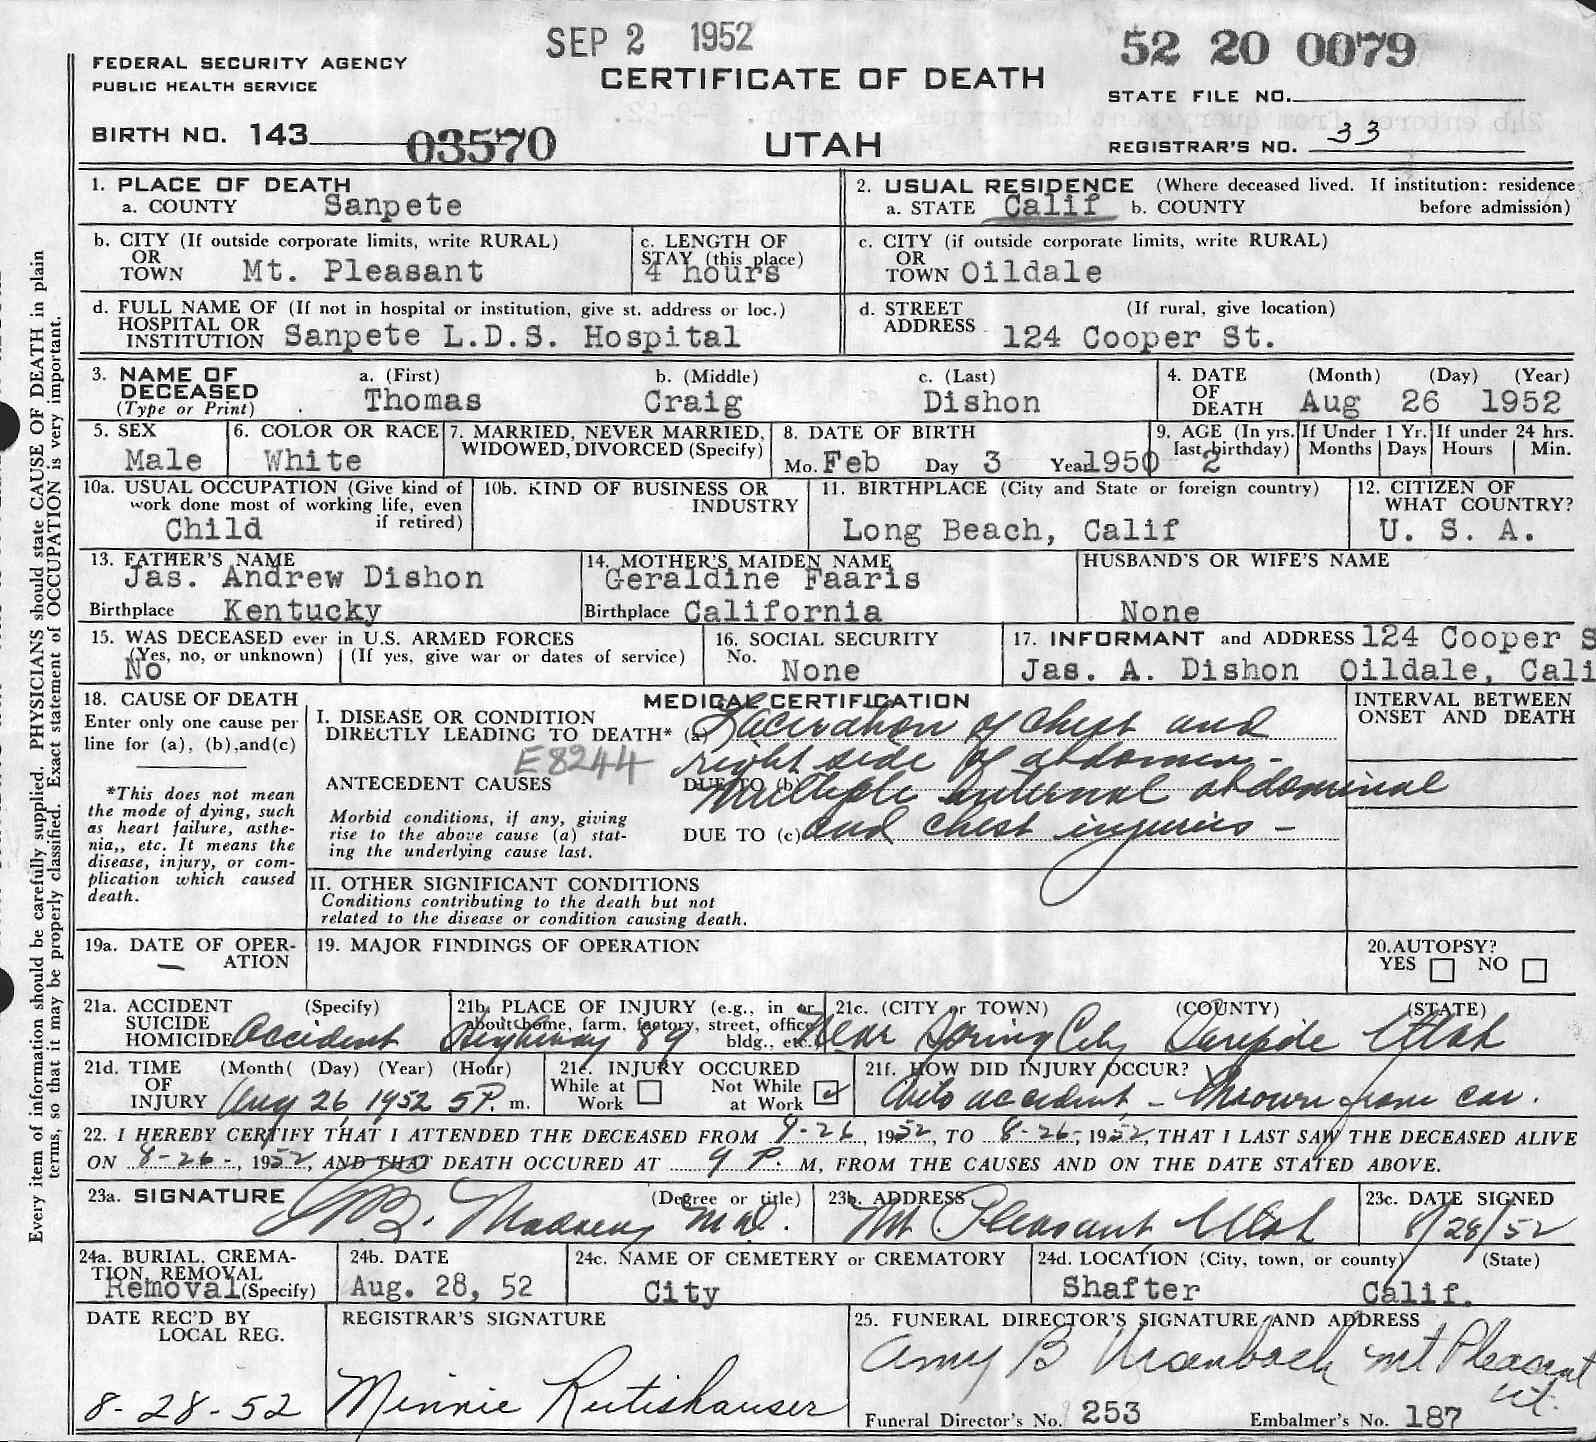 SEP 2 1952
52 20 0079
FEDERAL SECURITY AGENCY
PUBLIC HEALTH SERVICE
CERTIFICATE OF DEATH
STATE FILE NO.
BIRTH NO. 143 03570
UTAH
REGISTRAR'S NO. 33
1. PLACE OF DEATH
a. COUNTY Sanpete
2. USUAL RESIDENCE (Where deceased lived. If institution: residence before admission)
a. STATE Calif b. COUNTY
b. CITY (If outside corporate limits, write RURAL)
OR
TOWN Mt. Pleasant
c. LENGTH OF
STAY (this place)
4 hours
c. CITY (if outside corporate limits, write RURAL)
OR
TOWN Oildale
d. FULL NAME OF (If not in hospital or institution, give st. address or loc.)
HOSPITAL OR
INSTITUTION Sanpete L.D.S. Hospital
d. STREET (If rural, give location)
ADDRESS 124 Cooper St.
3. NAME OF
DECEASED
(Type or Print)
a. (First) b. (Middle) c. (Last)
Thomas Craig Dishon
4. DATE (Month) (Day) (Year)
OF
DEATH Aug 26 1952
5. SEX
Male
6. COLOR OR RACE
White
7. MARRIED, NEVER MARRIED,
WIDOWED, DIVORCED (Specify)
8. DATE OF BIRTH
Mo. Feb Day 3 Year 1950
9. AGE (In yrs. last birthday) 2
If Under 1 Yr.
Months Days
If under 24 hrs.
Hours Min.
10a. USUAL OCCUPATION (Give kind of
work done most of working life, even
if retired)
Child
10b. KIND OF BUSINESS OR
INDUSTRY
11. BIRTHPLACE (City and State or foreign country)
Long Beach, Calif
12. CITIZEN OF
WHAT COUNTRY?
U. S. A.
13. FATHER'S NAME
Jas. Andrew Dishon
Birthplace Kentucky
14. MOTHER'S MAIDEN NAME
Geraldine Faaris
Birthplace California
HUSBAND'S OR WIFE'S NAME
None
15. WAS DECEASED ever in U.S. ARMED FORCES
(Yes, no, or unknown) (If yes, give war or dates of service)
No
16. SOCIAL SECURITY
No. None
17. INFORMANT and ADDRESS 124 Cooper S
Jas. A. Dishon Oildale, Cali
18. CAUSE OF DEATH
Enter only one cause per
line for (a), (b), and (c)
*This does not mean
the mode of dying, such
as heart failure, asthe-
nia,, etc. It means the
disease, injury, or com-
plication which caused
death.
MEDICAL CERTIFICATION
I. DISEASE OR CONDITION
DIRECTLY LEADING TO DEATH* (a) Laceration of chest and
E8244 right side of abdomen -
ANTECEDENT CAUSES
DUE TO (b) Multiple internal abdominal
Morbid conditions, if any, giving
rise to the above cause (a) stat-
ing the underlying cause last.
DUE TO (c) and chest injuries -
INTERVAL BETWEEN
ONSET AND DEATH
II. OTHER SIGNIFICANT CONDITIONS
Conditions contributing to the death but not
related to the disease or condition causing death.
19a. DATE OF OPER-
ATION —
19. MAJOR FINDINGS OF OPERATION
20. AUTOPSY?
YES NO
21a. ACCIDENT (Specify)
SUICIDE
HOMICIDE Accident
21b. PLACE OF INJURY (e.g., in or
about home, farm, factory, street, office
bldg., etc.)
Highway 89
21c. (CITY or TOWN) (COUNTY) (STATE)
Near Spring City Sanpete Utah
21d. TIME (Month( (Day) (Year) (Hour)
OF
INJURY Aug 26 1952 5P. m.
21e. INJURY OCCURED
While at Work Not While at Work
21f. HOW DID INJURY OCCUR?
Auto accident - Thrown from car.
22. I HEREBY CERTIFY THAT I ATTENDED THE DECEASED FROM 8-26, 1952, TO 8-26-, 1952, THAT I LAST SAW THE DECEASED ALIVE
ON 8-26-, 1952, AND THAT DEATH OCCURED AT 9 P. M, FROM THE CAUSES AND ON THE DATE STATED ABOVE.
23a. SIGNATURE (Degree or title)
M.D.
23b. ADDRESS
Mt Pleasant Utah
23c. DATE SIGNED
8/28/52
24a. BURIAL, CREMA-
TION, REMOVAL
Removal (Specify)
24b. DATE
Aug. 28, 52
24c. NAME OF CEMETERY OR CREMATORY
City
24d. LOCATION (City, town, or county) (State)
Shafter Calif.
DATE REC'D BY
LOCAL REG.
8-28-52
REGISTRAR'S SIGNATURE
Minnie Rutishauser
25. FUNERAL DIRECTOR'S SIGNATURE AND ADDRESS
Amy B Mt Pleasant
Ut.
Funeral Director's No. 253 Embalmer's No. 187
Every item of information should be carefully supplied. PHYSICIANS should state CAUSE OF DEATH in plain
terms, so that it may be properly classified. Exact statement of OCCUPATION is very important.